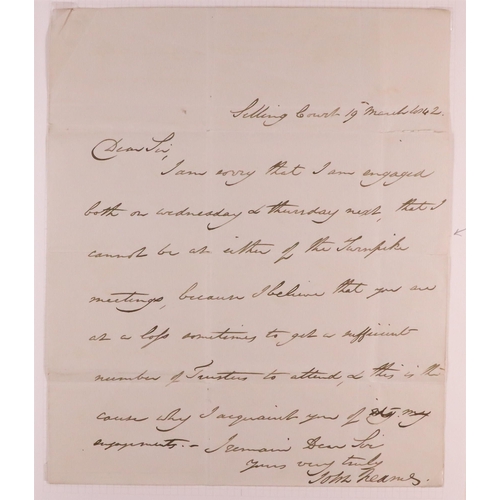 Selling Court 19th March 1842.
Dear Sir,
I am sorry that I am engaged
both on wednesday & thursday next, that I
cannot be at either of the Turnpike
meetings, because I believe that you are
at a loss sometimes to get a sufficient
number of Trustees to attend, & this is the
cause why I acquaint you of my
engagements. – I remain Dear Sir
yours very truly
John Neame.